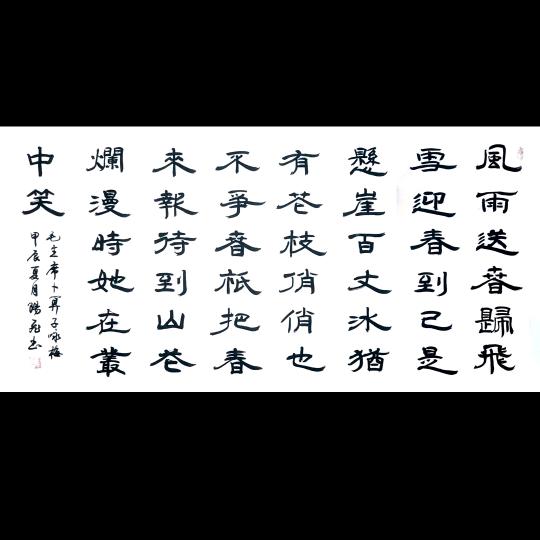 風雨送春歸飛
雪迎春到已是
懸崖百丈冰猶
有花枝俏俏也
不爭春祇把春
來報待到山花
爛漫時她在叢
中笑
毛主席卜算子咏梅
甲辰夏月